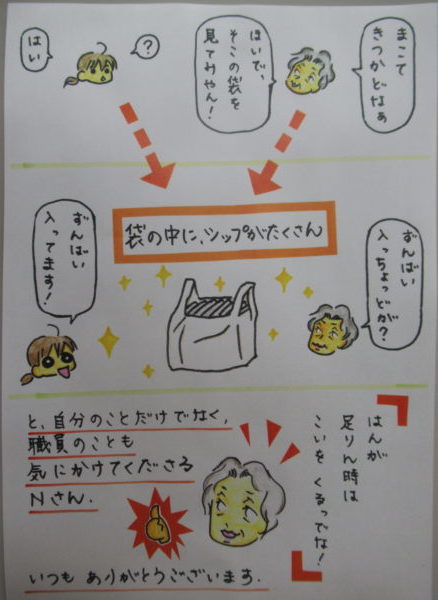 まこて
きつかどなぁ
ほいで、
そこの袋を
見てみやん!
?
はい
袋の中に、シップがたくさん
ずんばい
入っちょっどが?
ずんばい
入ってます!
はんが
足りん時は
こいを くるっでな!
と、自分のことだけでなく、
職員のことも
気にかけてくださる
Nさん.
いつも ありがとうございます.